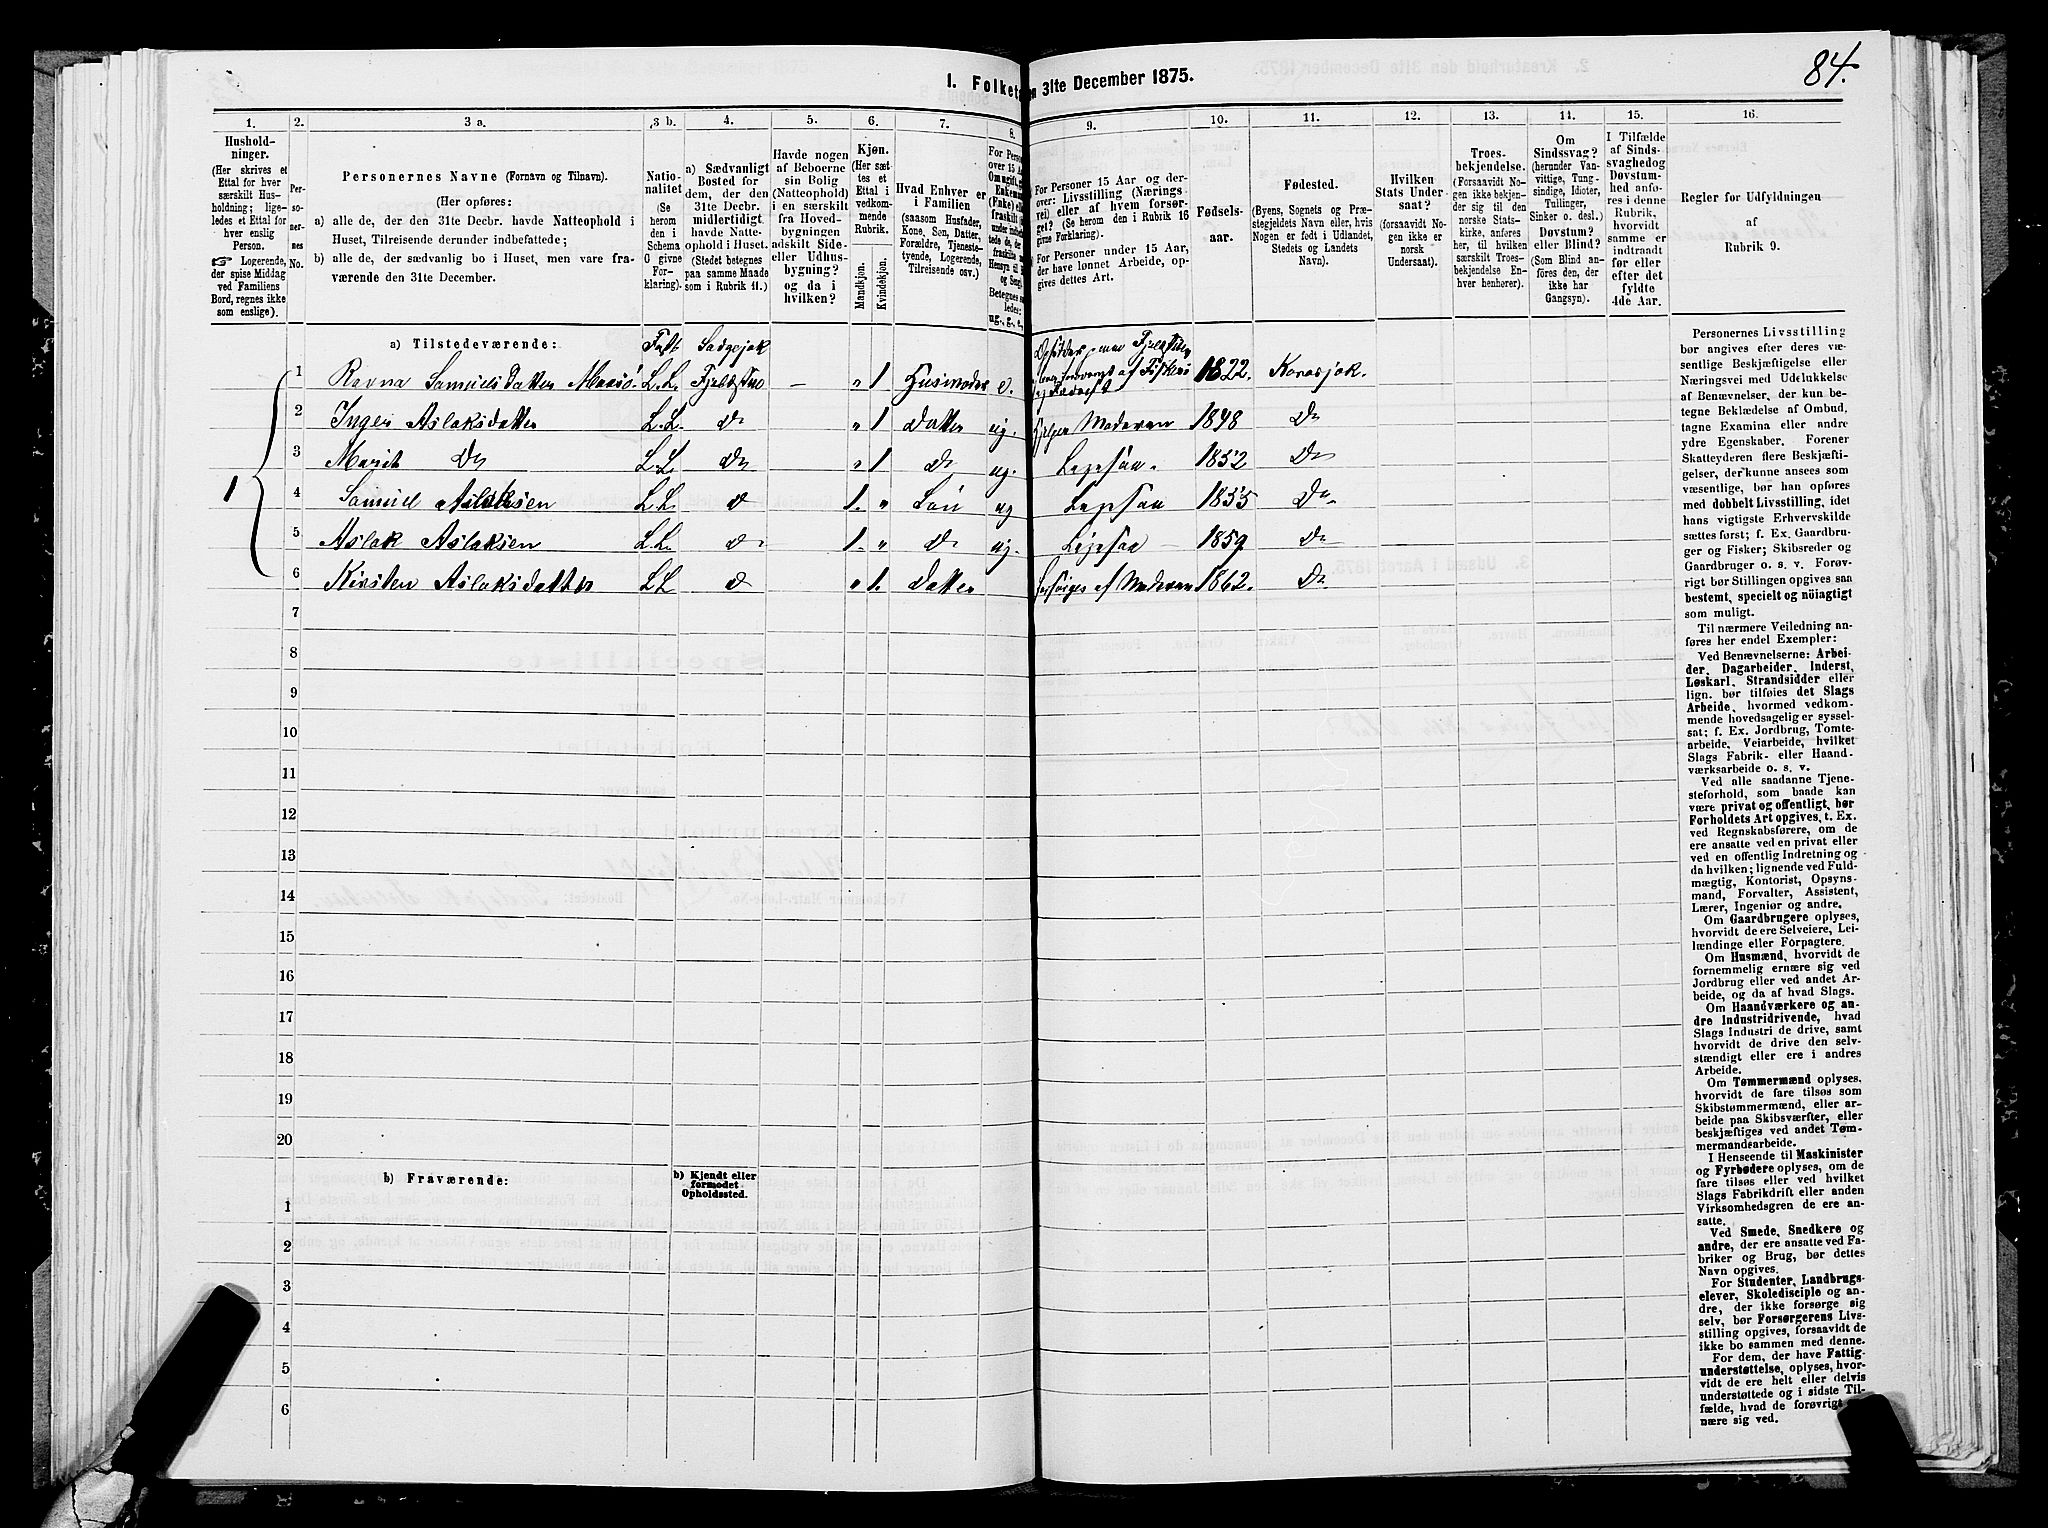 84.
I. Folketa
en 31te December 1875.
1.
2.
3 a.
3 b.
4.
5.
6.
7.
8.
9.
10.
11.
12.
13.
14.
15.
16.
Hushold-
ninger.
(Her skrives et
Ettal for hver
særskilt Hus-
holdning; lige-
ledes et Ettal for
hver enslig
Person.
☞ Logerende,
der spise Middag
ved Familiens
Bord, regnes ikke
som enslige).
Per-
so-
ner-
nes
No.
Personernes Navne (Fornavn og Tilnavn).
(Her opføres:
a) alle de, der den 31te Decbr. havde Natteophold i
Huset, Tilreisende derunder indbefattede;
b) alle de, der sædvanlig bo i Huset, men vare fra-
værende den 31te December.
Natio-
nalitet
(Se
herom
den i
Schema
G givne
For-
klaring).
a) Sædvanligt
Bosted for
dem, der den
31te Decbr.
midlertidigt
havde Natte-
ophold i Huset.
(Stedet betegnes
paa samme Maade
som i Rubrik 11.)
Havde nogen
af Beboerne
sin Bolig
(Natteophold)
i en særskilt
fra Hoved-
bygningen
adskilt Side-
eller Udhus-
bygning?
og da i
hvilken?
Kjøn.
(Her sæt-
tes et
Ettal i
vedkom-
mende
Rubrik.
Mandkjøn.
Kvindekjøn.
Hvad Enhver er
i Familien
(saasom Husfader,
Kone, Søn, Datter,
Forældre, Tjeneste-
tyende, Logerende,
Tilreisende osv.)
For Personer 15 Aar og der-
over: Livsstilling (Nærings-
vei) eller af hvem forsør-
get? (Se herom den i Rubrik 16
givne Forklaring).
For Personer under 15 Aar,
der have lønnet Arbeide, op-
gives dettes Art.
Fødsels-
aar.
Fødested.
(Byens, Sognets og Præ-
stegjeldets Navn eller, hvis
Nogen er født i Udlandet,
Stedets og Landets
Navn).
Hvilken
Stats Under-
saat?
(forsaavidt No-
gen ikke er
norsk
Undersaat).
Troes-
bekjendelse.
(Forsaavidt No-
gen ikke bekjen-
der sig til den
norske Stats-
kirke, anføres
her, til hvilken
særskilt Troes-
bekjendelse En-
hver henhører).
Om
Sindssvag?
(herunder Van-
vittige, Tung-
sindige, Idioter,
Tullinger,
Sinker o. desl.)
Døvstum?
eller Blind?
(Som Blind an-
føres den, der
ikke har
Gangsyn).
I Tilfælde
af Sinds-
svaghedog
Døvstum-
hed anfø-
res i denne
Rubrik,
hvorvidt
samme er
indtraadt
før eller
efter det
fyldte
4de Aar.
Regler for Udfyldningen
af
Rubrik 9.
a) Tilstedeværende:
1 Ravna Samuels Datter L.L. Fjeldstuo — „ 1 Husmoder e. 1822. Karasjok.
2 Inger Aslaksdatter L.L. Do „ 1 Datter ug. Hjelper Moderen 1848 Do
1
3 Marit Do L.L. Do „ 1 Do ug. 1852 Do
4 Samuel Aslaksen L L. Do 1. „ Søn ug 1855 Do
5 Aslak Aslaksen L L. Do 1. „ Do ug. 1859 Do
6 Kirsten Aslaksdatter L L Do „ 1. Datter Forsørges af Moderen 1862. Do
7
8
9
10
11
12
13
14
15
16
17
18
19
20
b) Fraværende:
b) Kjendt eller
formodet
Opholdssted.
1
2
3
4
5
6
Personernes Livsstilling
bør angives efter deres væ-
sentlige Beskjæftigelse eller
Næringsvei med Udelukkelse
af Benævnelser, der kun be-
tegne Beklædelse af Ombud,
tagne Examina eller andre
ydre Egenskaber. Forener
Skatteyderen flere Beskjæfti-
gelser, der kunne ansees som
væsentlige, bør han opføres
med dobbelt Livsstilling, idet
hans vigtigste Erhvervskilde
sættes først; f. Ex. Gaardbru-
ger og Fisker; Skibsreder og
Gaardbruger o. s. v. Forøv-
rigt bør Stillingen opgives saa
bestemt, specielt og nöiagtigt
som muligt.
Til nærmere Veiledning an-
føres her endel Exempler:
Ved Benævnelserne: Arbei-
der, Dagarbeider, Inderst,
Løskarl, Strandsidder eller
lign. bør tilføies det Slags
Arbeide, hvormed vedkom-
mende hovedsagelig er syssel-
sat; f. Ex. Jordbrug, Tomte-
arbeide, Veiarbeide, hvilket
Slags Fabrik- eller Haand-
værksarbeide o. s. v.
Ved alle saadanne Tjene-
steforhold, som baade kan
være privat og offentligt, bør
Forholdets Art opgives, t. Ex.
ved Regnskabsførere, om de
ere ansatte ved en privat eller
ved en offentlig Indretning og
da hvilken; lignende ved Fuld-
mægtig, Kontorist, Opsyns-
mand, Forvalter, Assistent,
Lærer, Ingeniør og andre.
Om Gaardbrugere oplyses,
hvorvidt de ere Selveiere, Lei-
lændinge eller Forpagtere.
Om Husmænd, hvorvidt de
fornemmelig ernære sig ved
Jordbrug eller ved andet Ar-
beide, og da af hvad Slags.
Om Haandværkere og an-
dre Industridrivende, hvad
Slags Industri de drive, samt
hvorvidt de drive den selv-
stændigt eller ere i andres
Arbeide.
Om Tømmermænd oplyses,
hvorvidt de fare tilsøs som
Skibstømmermænd, eller ar-
beide paa Skibsværfter, eller
beskjæftiges ved andet Tøm-
mermandsarbeide.
I Henseende til Maskinister
og Fyrbødere oplyses, om de
fare tilsøs eller ved hvilket
Slags Fabrikdrift eller anden
Virksomhedsgren de ere an-
satte.
Ved Smede, Snedkere og
andre, der ere ansatte ved Fa-
briker og Brug, bør dettes
Navn opgives.
For Studenter, Landbrugs-
elever, Skoledisciple og an-
dre, der ikke forsørge sig
selv, bør Forsørgerens Livs-
stilling opgives, forsaavidt de
ikke bo sammen med denne.
For dem, der have Fattig-
understøttelse, oplyses, hvor-
vidt de ere helt eller delvis
understøttede og i sidste Til-
fælde, hvad de forøvrigt er-
nære sig ved.